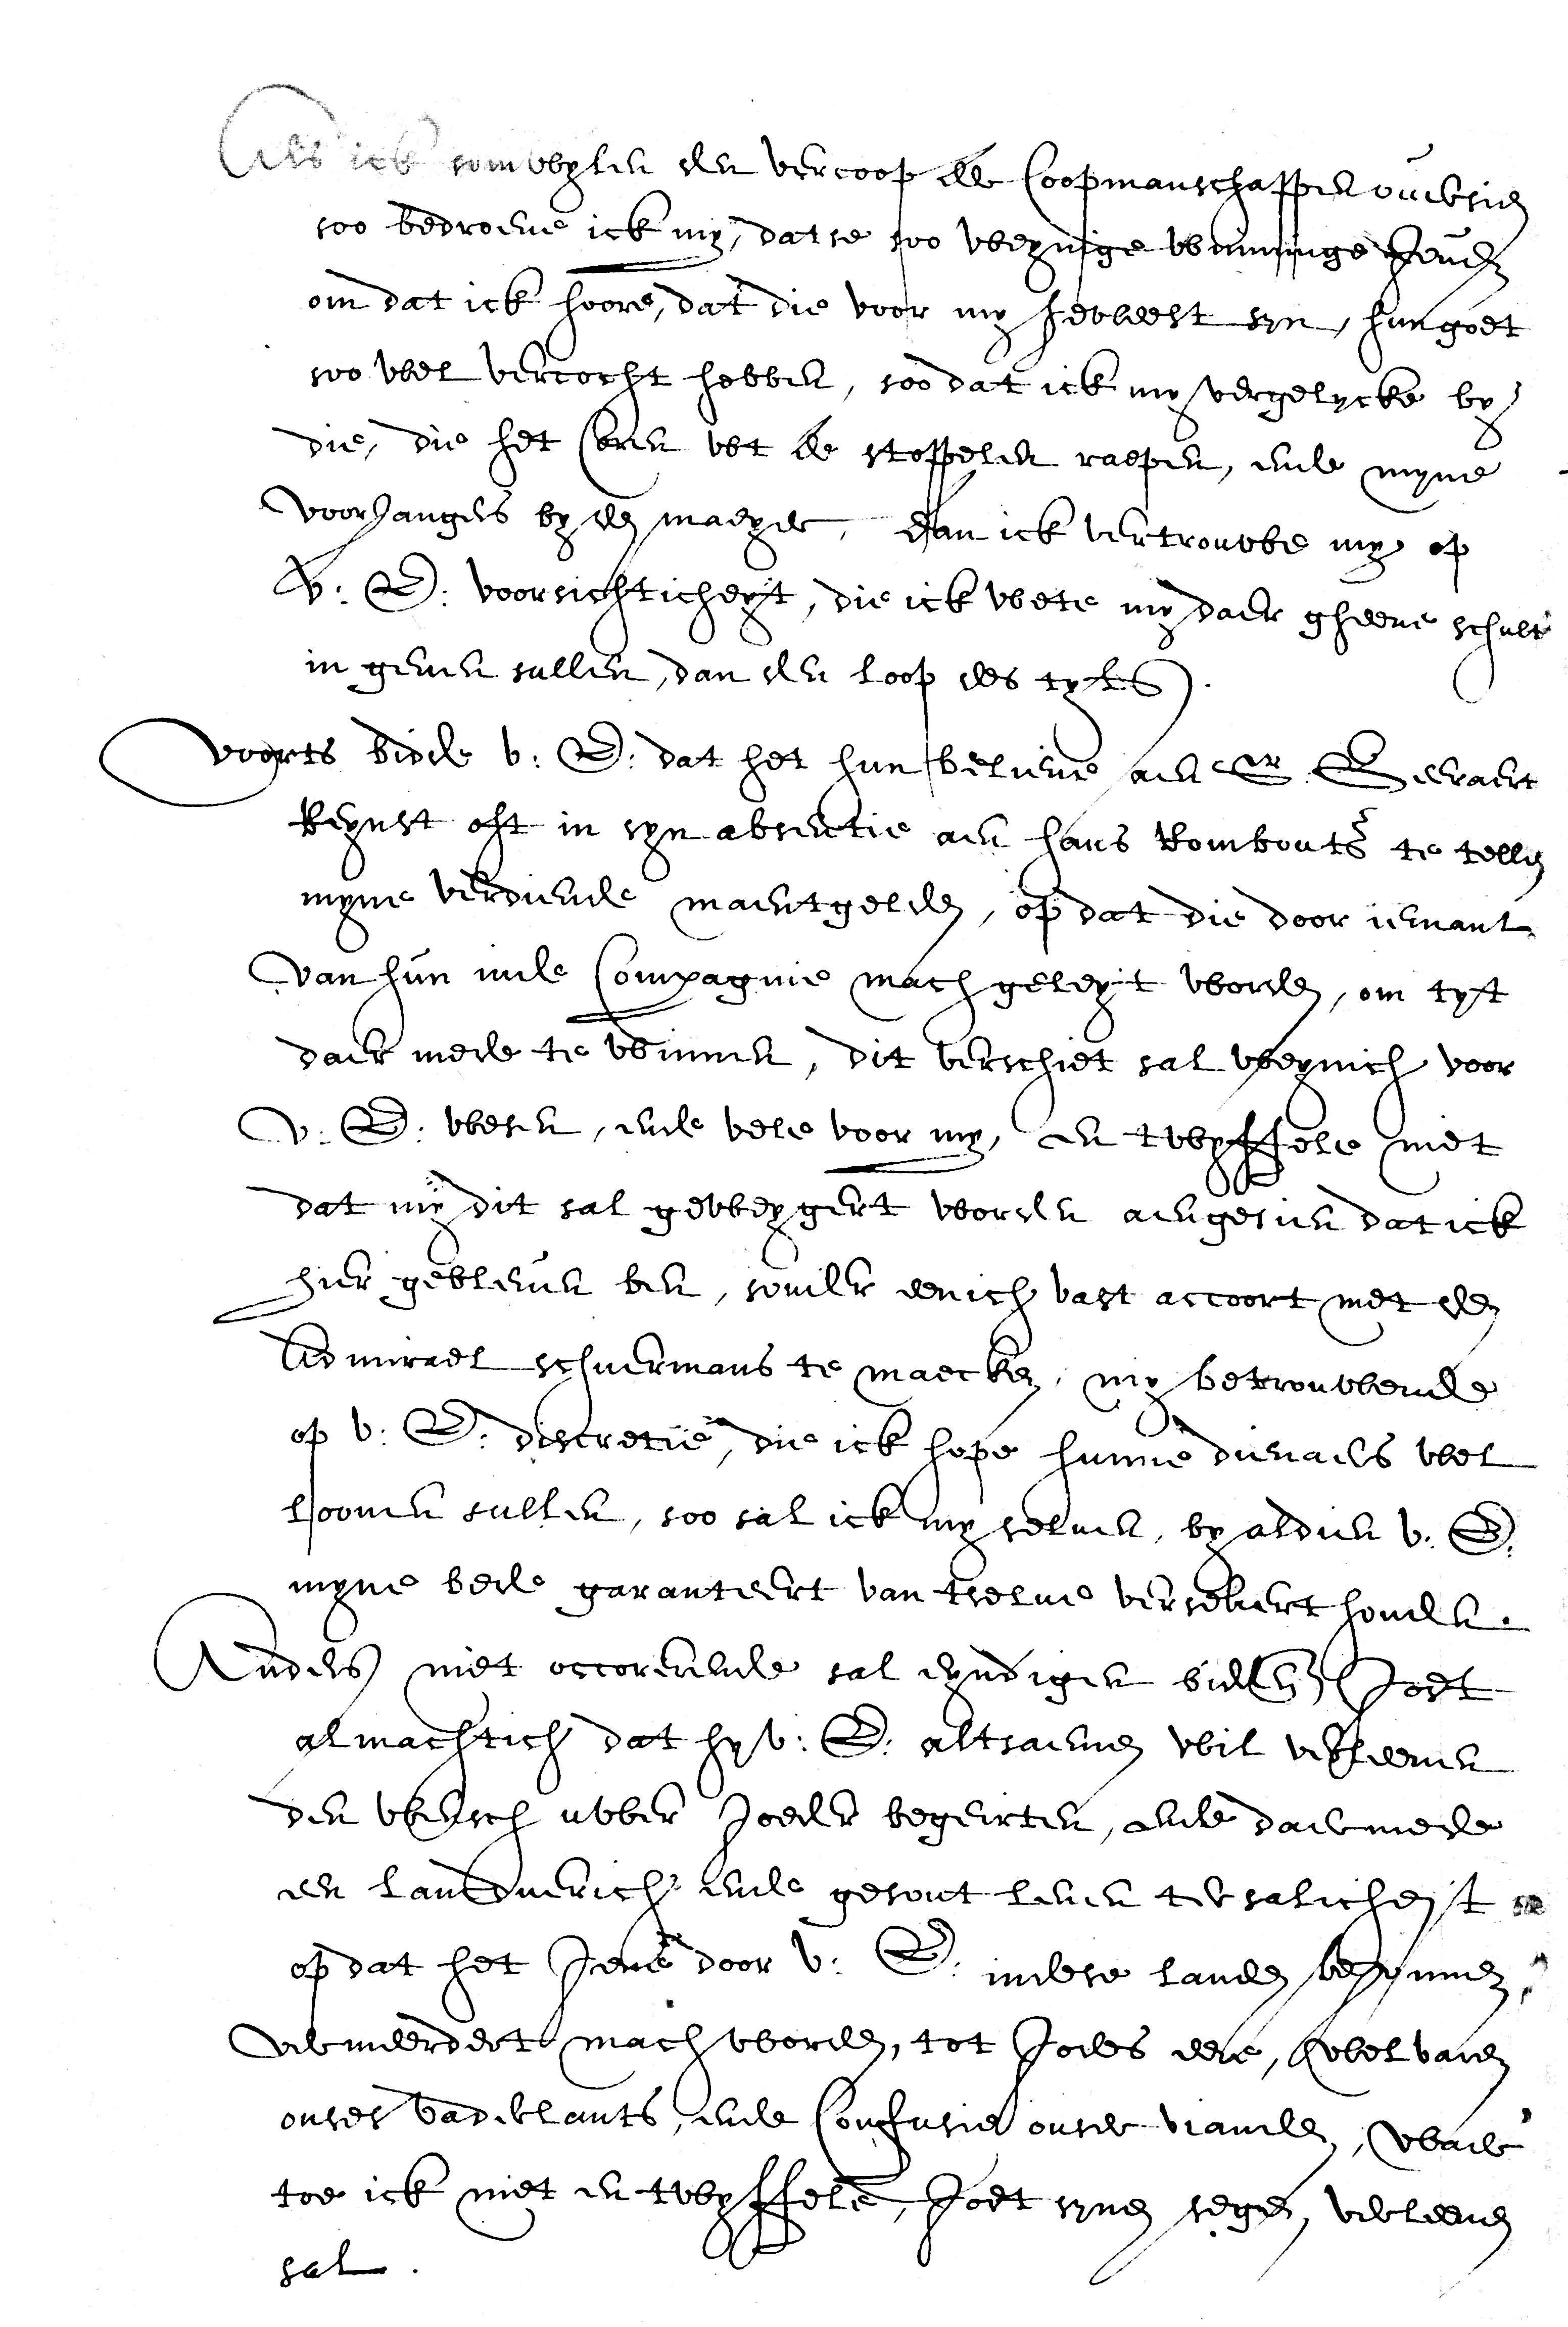 Als ick somwylen den vercoop der Coopmanschappen oversien
soo bedroeve ick my, datse soo weynige winninge geven
om dat ick hoore, dat die voor my geweest syn, hun goet
soo wel vercocht hebben, soo dat ick my vergelycke by
die, die het Coren wt de stoppelen raepen, ende myne
voorgangers by den maeyer, dan ick vertrouwe my op
V: E: voorsichticheyt, die ick wete my daer gheene schult
in geven sullen, dan den loop des tyts.
Voorts bidde v: E: dat het hun believe aen Sr Geeraert
Reynst oft in syn absentie aen hans Rombouts te tellen
myne verdiende maentgelden, op dat die door iemant
van hun inde Compagnie mach geleyt worden, om tyt
daer mede te winnen, dit verschiet sal weynich voor
V: E: wesen, ende vele voor my, en twyffele niet
dat my dit sal geweygert worden aengesien dat ick
hier gebleven ben, sonder eenich vast accoort met den
Admirael schuermans te maecken, my betrouwende
op v: E: discretie, die ick hope hunne dienaers wel
loonen sullen, soo sal ick my selven, by aldien v: E:
myne bede garanteert van tselve versekert houden.
Anders niet occorerende sal eyndigen biddende Godt
almachtich dat hy v: E: altsaemen wil verleenen
den wensch uwer goeder begeirten, ende daermede
een lanckduerich ende gesont leven ter salicheyt
op dat het gene door v: E: in dese landen begonnen,
vermeerdert mach worden, tot Godes eere, welvaren
onses vaderlants, ende Confusie onser vianden, waer
toe ick niet en twyffele, Godt synen segen verleenen
sal.